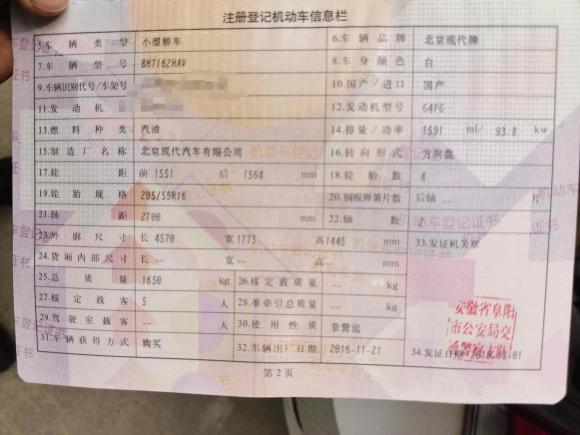 注册登记机动车信息栏
5.车辆类型 小型轿车 6.车辆品牌 北京现代牌
7.车辆型号 BH7162HAV 8.车身颜色 白
9.车辆识别代号/车架号 10.国产/进口 国产
11.发动机 12.发动机型号 G4FG
13.燃料种类 汽油 14.排量/功率 1591 ml/ 93.8 kw
15.制造厂名称 北京现代汽车有限公司 16.转向形式 方向盘
17.轮距 前 1551 后 1564 mm 18.轮胎数 4
19.轮胎规格 205/55R16 20.钢板弹簧片数 后轴 -- 片
21.轴距 2700 mm 22.轴数 2
23.外廓尺寸 长 4570 宽 1775 高 1445 mm 33.发证机关章
24.货厢内部尺寸 长 -- 宽 -- 高 -- mm
25.总质量 1650 kg 26.核定载质量 -- kg
27.核定载客 5 人 28.准牵引总质量 -- kg
29.驾驶室载客 -- 人 30.使用性质 非营运
31.车辆获得方式 购买 32.车辆出厂日期 2016-11-21 34.发证日期
安徽省阜阳
市公安局交
通警察支队
第2页